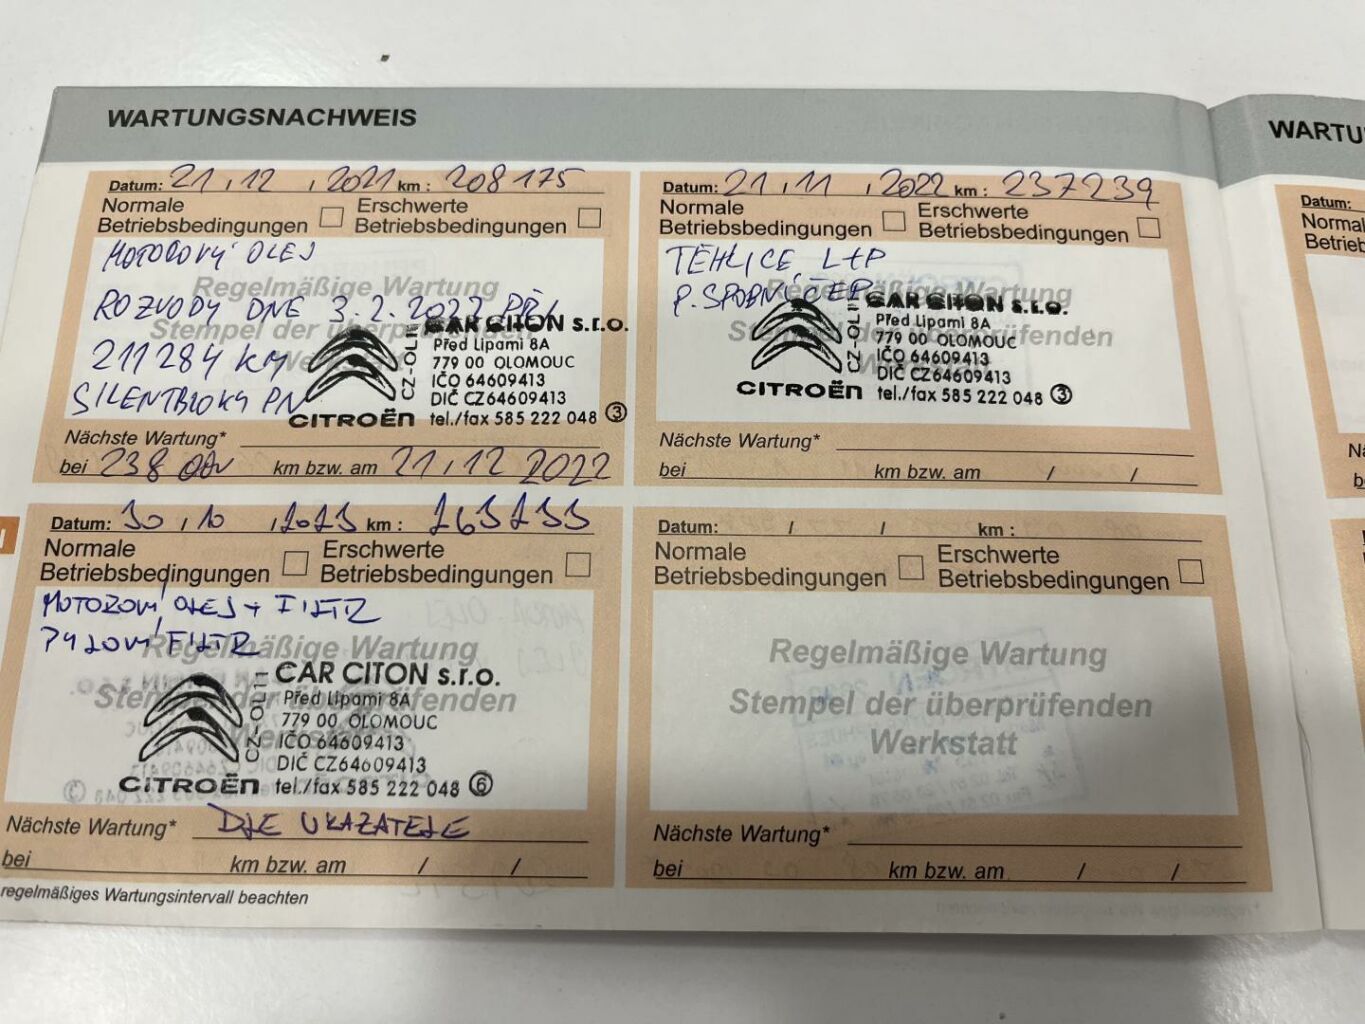 WARTUNGSNACHWEIS
Datum: 21 / 12 / 2021 km : 208175
Normale
Betriebsbedingungen
Erschwerte
Betriebsbedingungen
MOTOROVÝ OLEJ
Regelmäßige Wartung
ROZVODY DNE 3.2.2022 PŘI
Stempel der überprüfenden
211284 KM
SILENTBLOKY PN
CAR CITON s.r.o.
Před Lipami 8A
779 00 OLOMOUC
IČO 64609413
DIČ CZ64609413
tel./fax 585 222 048 3
CITROËN
Nächste Wartung*
bei 238 000 km bzw. am 21 / 12 2022
Datum: 21 / 11 / 2022 km : 237239
Normale
Betriebsbedingungen
Erschwerte
Betriebsbedingungen
TĚHLICE L+P
Regelmäßige Wartung
P. SPODNÍ ČEP
CAR CITON s.r.o.
Před Lipami 8A
779 00 OLOMOUC
IČO 64609413
DIČ CZ64609413
tel./fax 585 222 048 3
CITROËN
Nächste Wartung*
bei km bzw. am / /
Datum: 30 / 10 / 2023 km : 263233
Normale
Betriebsbedingungen
Erschwerte
Betriebsbedingungen
MOTOROVÝ OLEJ + FILTR
PYLOVÝ FILTR
Regelmäßige Wartung
Stempel der überprüfenden
CAR CITON s.r.o.
Před Lipami 8A
779 00 OLOMOUC
IČO 64609413
DIČ CZ64609413
tel./fax 585 222 048 6
CITROËN
Nächste Wartung* DLE UKAZATELE
bei km bzw. am / /
regelmäßiges Wartungsintervall beachten
Datum: / / km :
Normale
Betriebsbedingungen
Erschwerte
Betriebsbedingungen
Regelmäßige Wartung
Stempel der überprüfenden
Werkstatt
Nächste Wartung*
bei km bzw. am / /
WARTU
Datum:
Normal
Betrieb